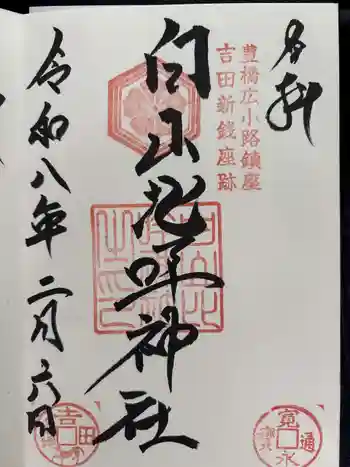 奉拝
豊橋広小路鎮座
吉田新錢座跡
白山比咩神社
令和八年二月六日
寛永通寳
吉田